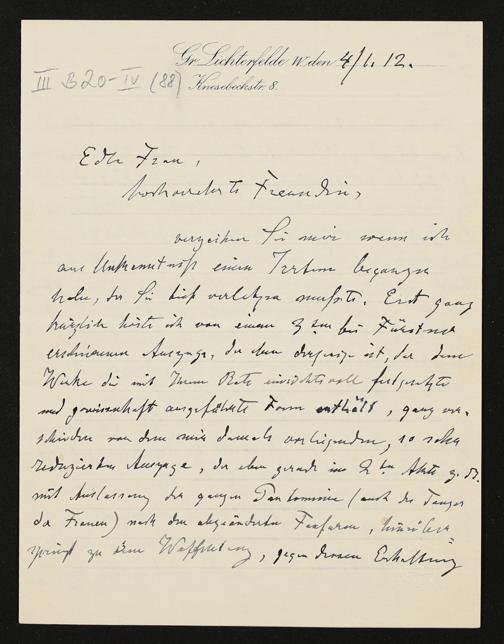 Gr. Lichterfelde W. den 4/1. 12.
III B 20-IV (88) Knesebeckstr. 8.
Edle Frau,
hochverehrte Freundin,
verzeihen Sie mir wenn ich
aus Unkenntniß einen Irrtum begangen
habe, der Sie tief verletzen mußte. Erst ganz
kürzlich hörte ich von einem 3ten bei Fürstner
erschienenen Auszuge, der eben derjenige ist, der dem
Werke die mit Ihrem Rate einsichtsvoll festgesetzte
und gewissenhaft ausgeführte Form enthält, ganz ver-
schieden von dem mir damals vorliegenden, so sehr
reduzierten Auszuge, der eben gerade im 2ten Akte z. B.
mit Auslassung der ganzen Pantomime (auch des Tanzes
der Frauen) nach den abgeänderten Fanfaren,
springt zu dem, gegen dessen Erhaltung